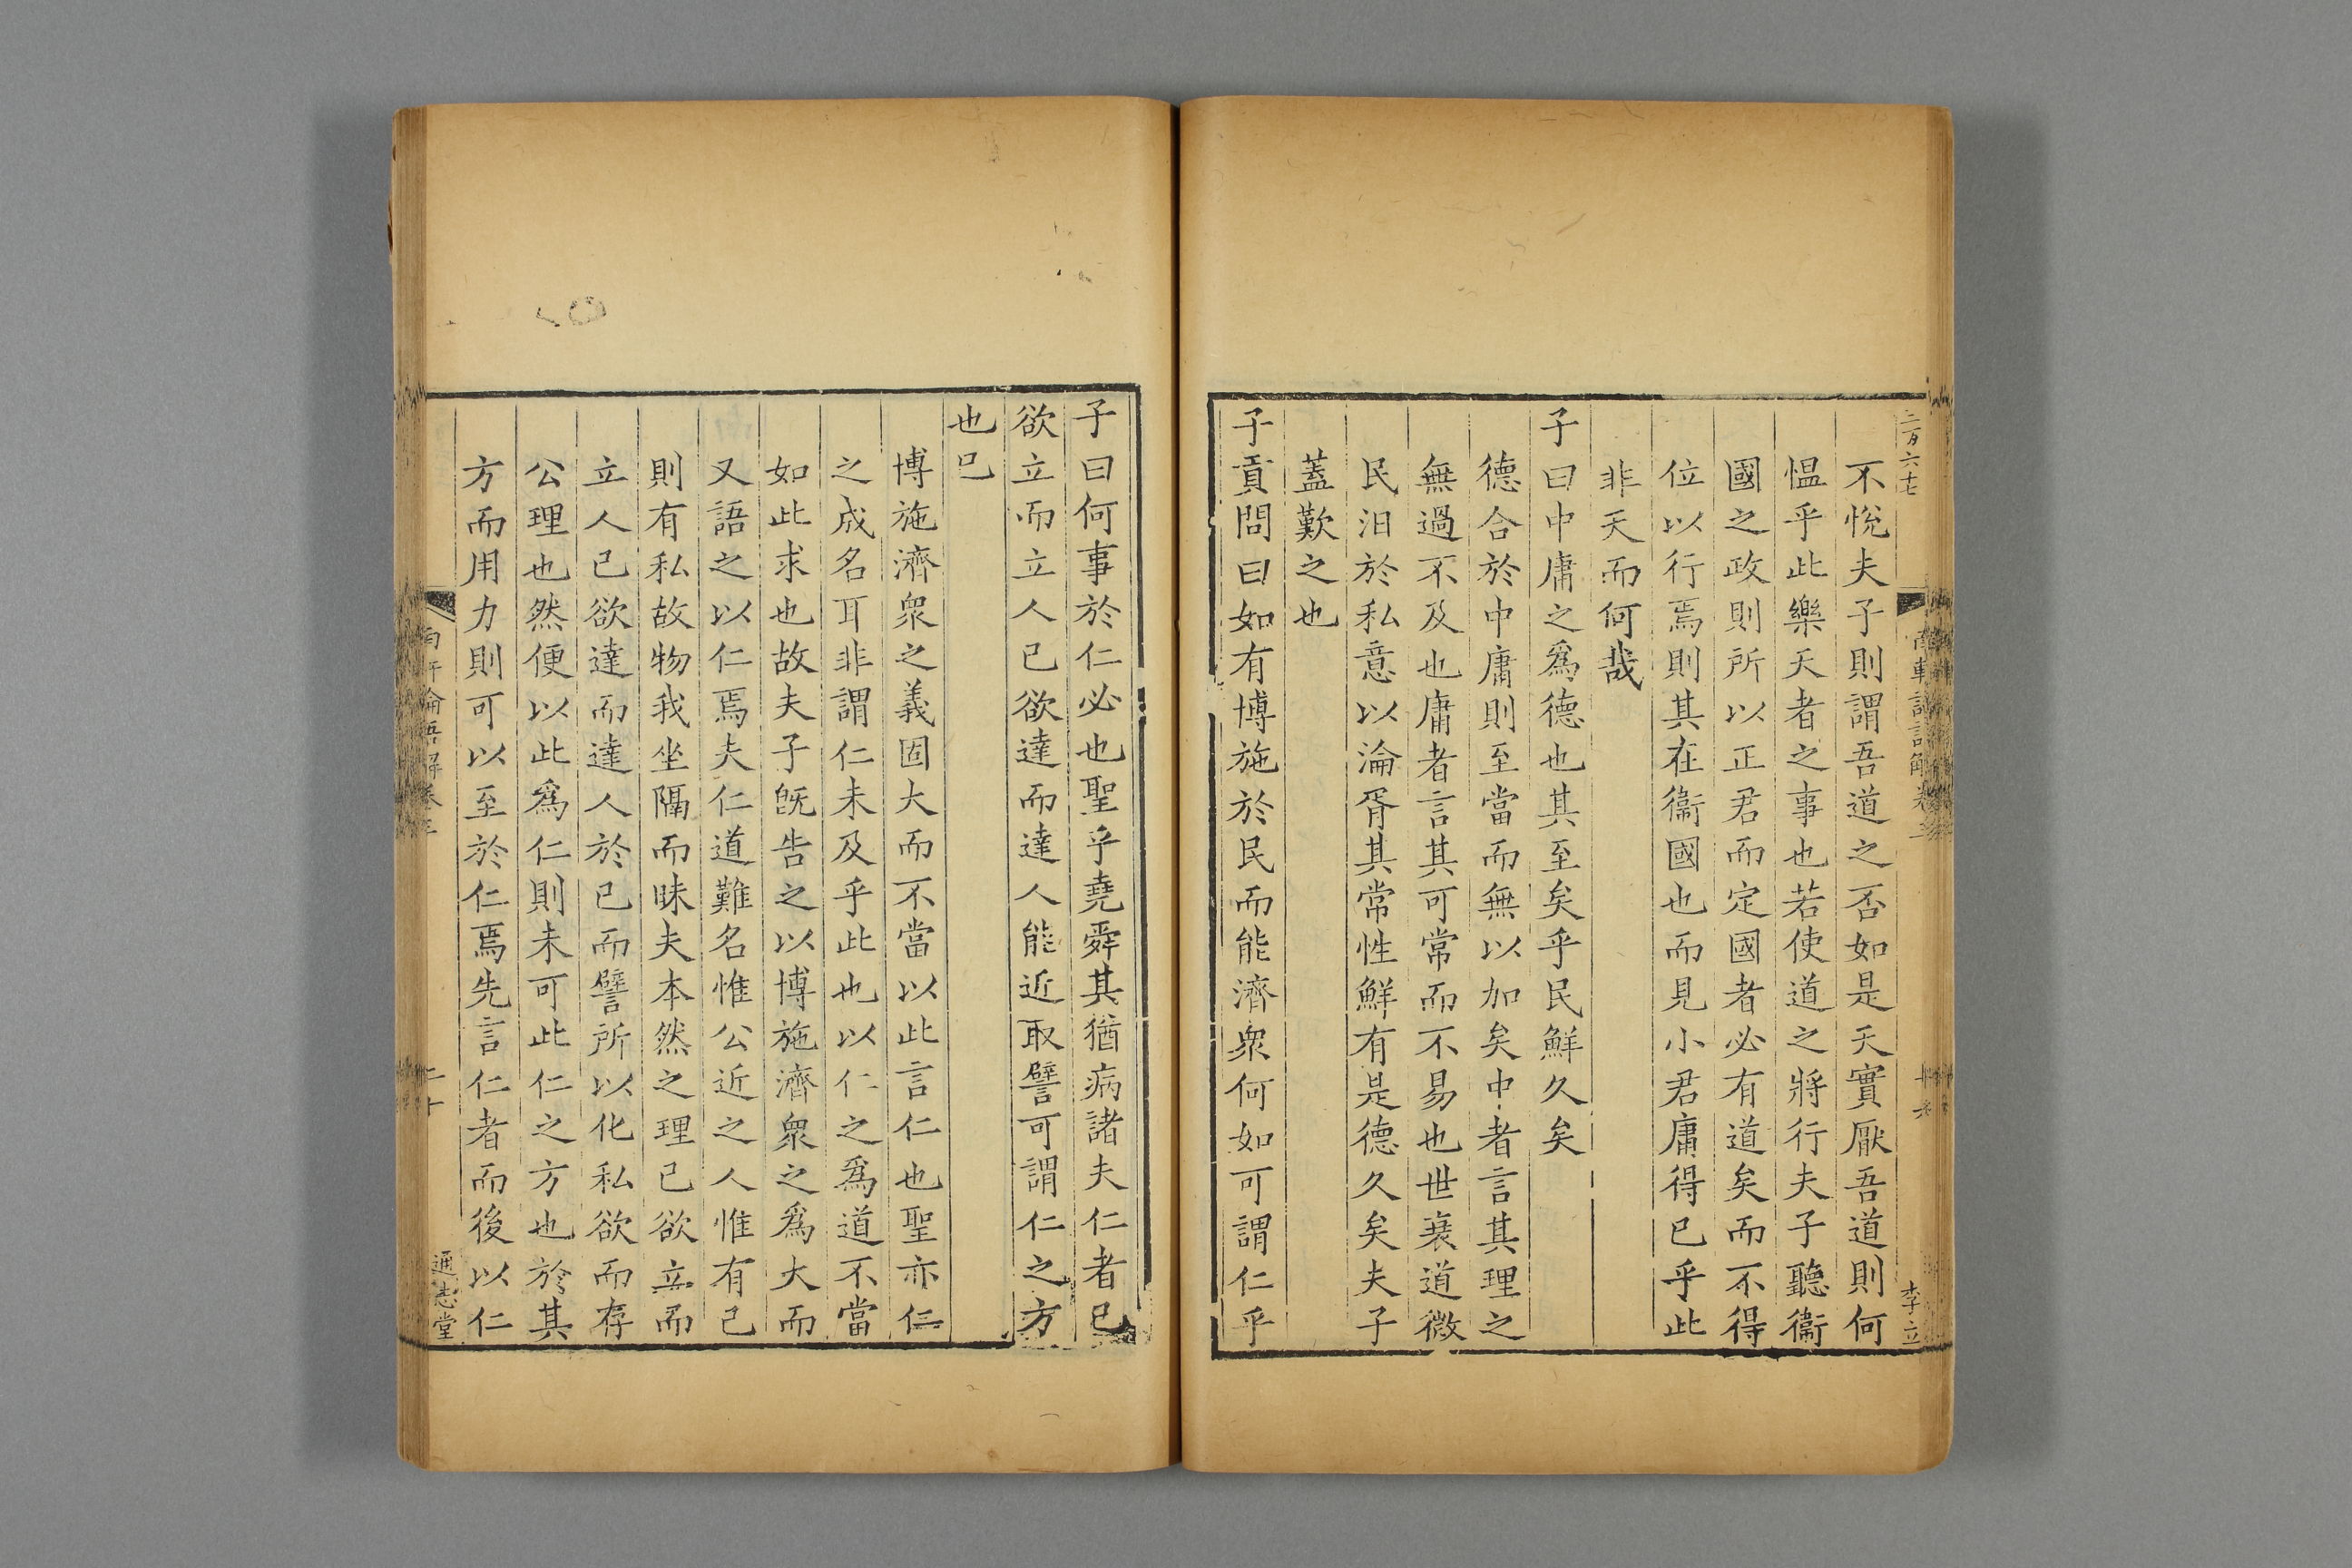 二百六十七
李立
不悅夫子則謂吾道之否如是天實厭吾道則何
愠乎此樂天者之事也若使道之將行夫子聽衞
國之政則所以正君而定國者必有道矣而不得
位以行焉則其在衞國也而見小君庸得已乎此
非天而何哉
子曰中庸之爲德也其至矣乎民鮮久矣
德合於中庸則至當而無以加矣中者言其理之
無過不及也庸者言其可常而不易也世衰道微
民汨於私意以淪胥其常性鮮有是德久矣夫子
蓋歎之也
子貢問曰如有博施於民而能濟衆何如可謂仁乎
子曰何事於仁必也聖乎堯舜其猶病諸夫仁者己
欲立而立人己欲達而達人能近取譬可謂仁之方
也已
博施濟衆之義固大而不當以此言仁也聖亦仁
之成名耳非謂仁未及乎此也以仁之爲道不當
如此求也故夫子旣告之以博施濟衆之爲大而
又語之以仁焉夫仁道難名惟公近之人惟有己
則有私故物我坐隔而昧夫本然之理己欲立而
立人己欲達而達人於己而譬所以化私欲而存
公理也然便以此爲仁則未可此仁之方也於其
方而用力則可以至於仁焉先言仁者而後以仁
南軒論語解卷三
二十
通志堂